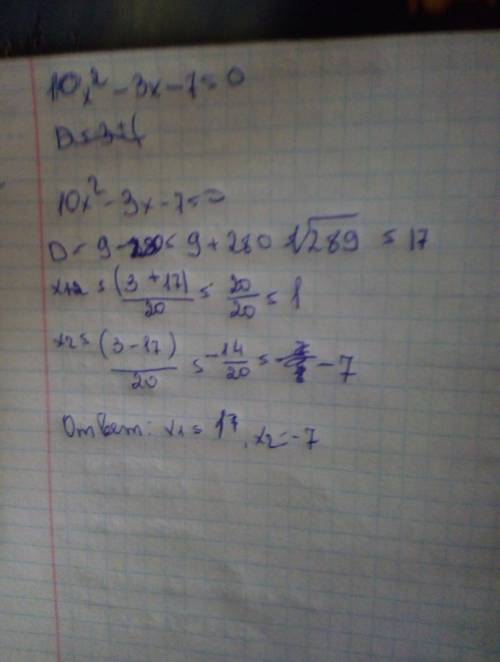 10x² - 3x - 7 = 0
10x² - 3x - 7 = 0
D = 9 - 280 = 9 + 280 √289 = 17
x₁₂ = (3 + 17) / 20 = 20/20 = 1
x₂ = (3 - 17) / 20 = -14/20 = -7
Ответ: x₁ = 1, x₂ = -7